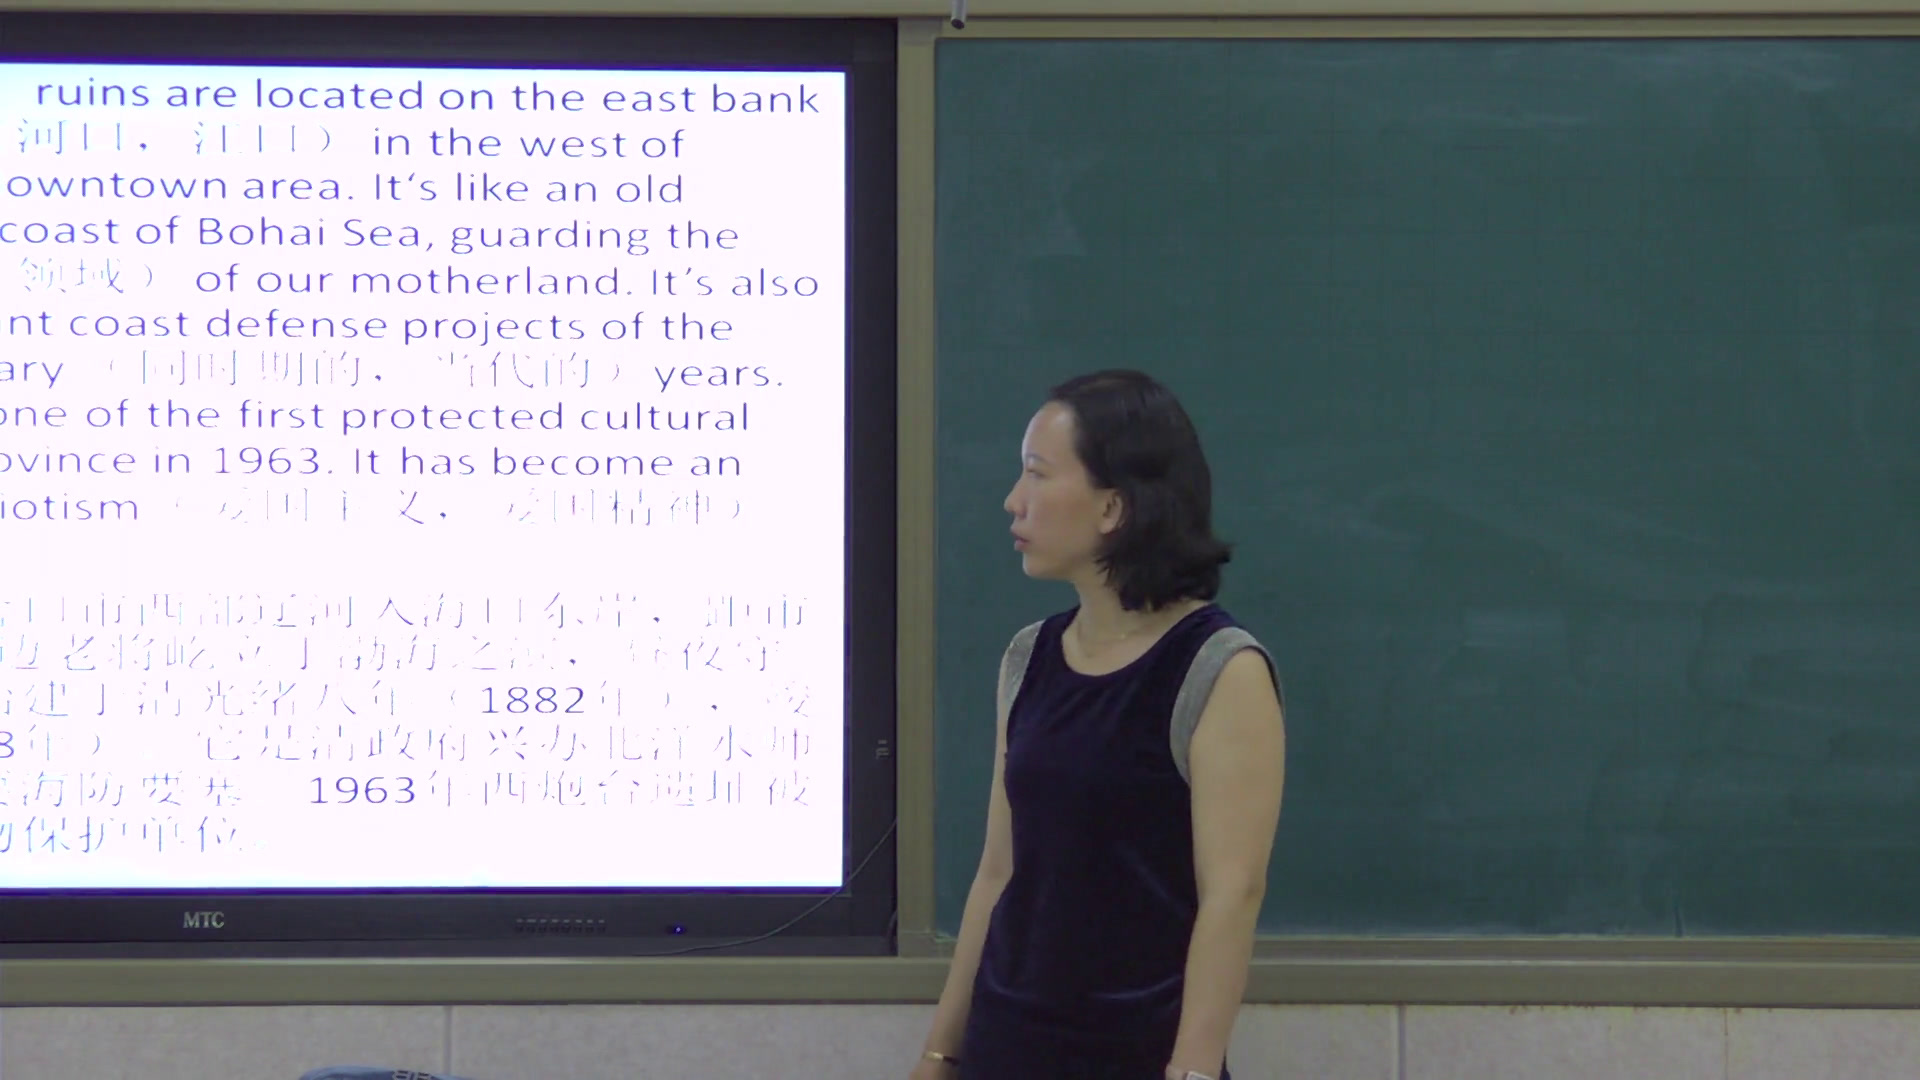 ruins are located on the east bank
河口，江口） in the west of
owntown area. It‘s like an old
coast of Bohai Sea, guarding the
领域） of our motherland. It’s also
nt coast defense projects of the
ary （同时期的，当代的） years.
one of the first protected cultural
ovince in 1963. It has become an
iotism （爱国主义，爱国精神）
口市西部辽河入海口东岸，距市
边老将屹立于渤海之滨，昼夜守
台建于清光绪八年（1882年），竣
8年），它是清政府兴办北洋水师
海防要塞 1963年西炮台遗址被
物保护单位。
MTC